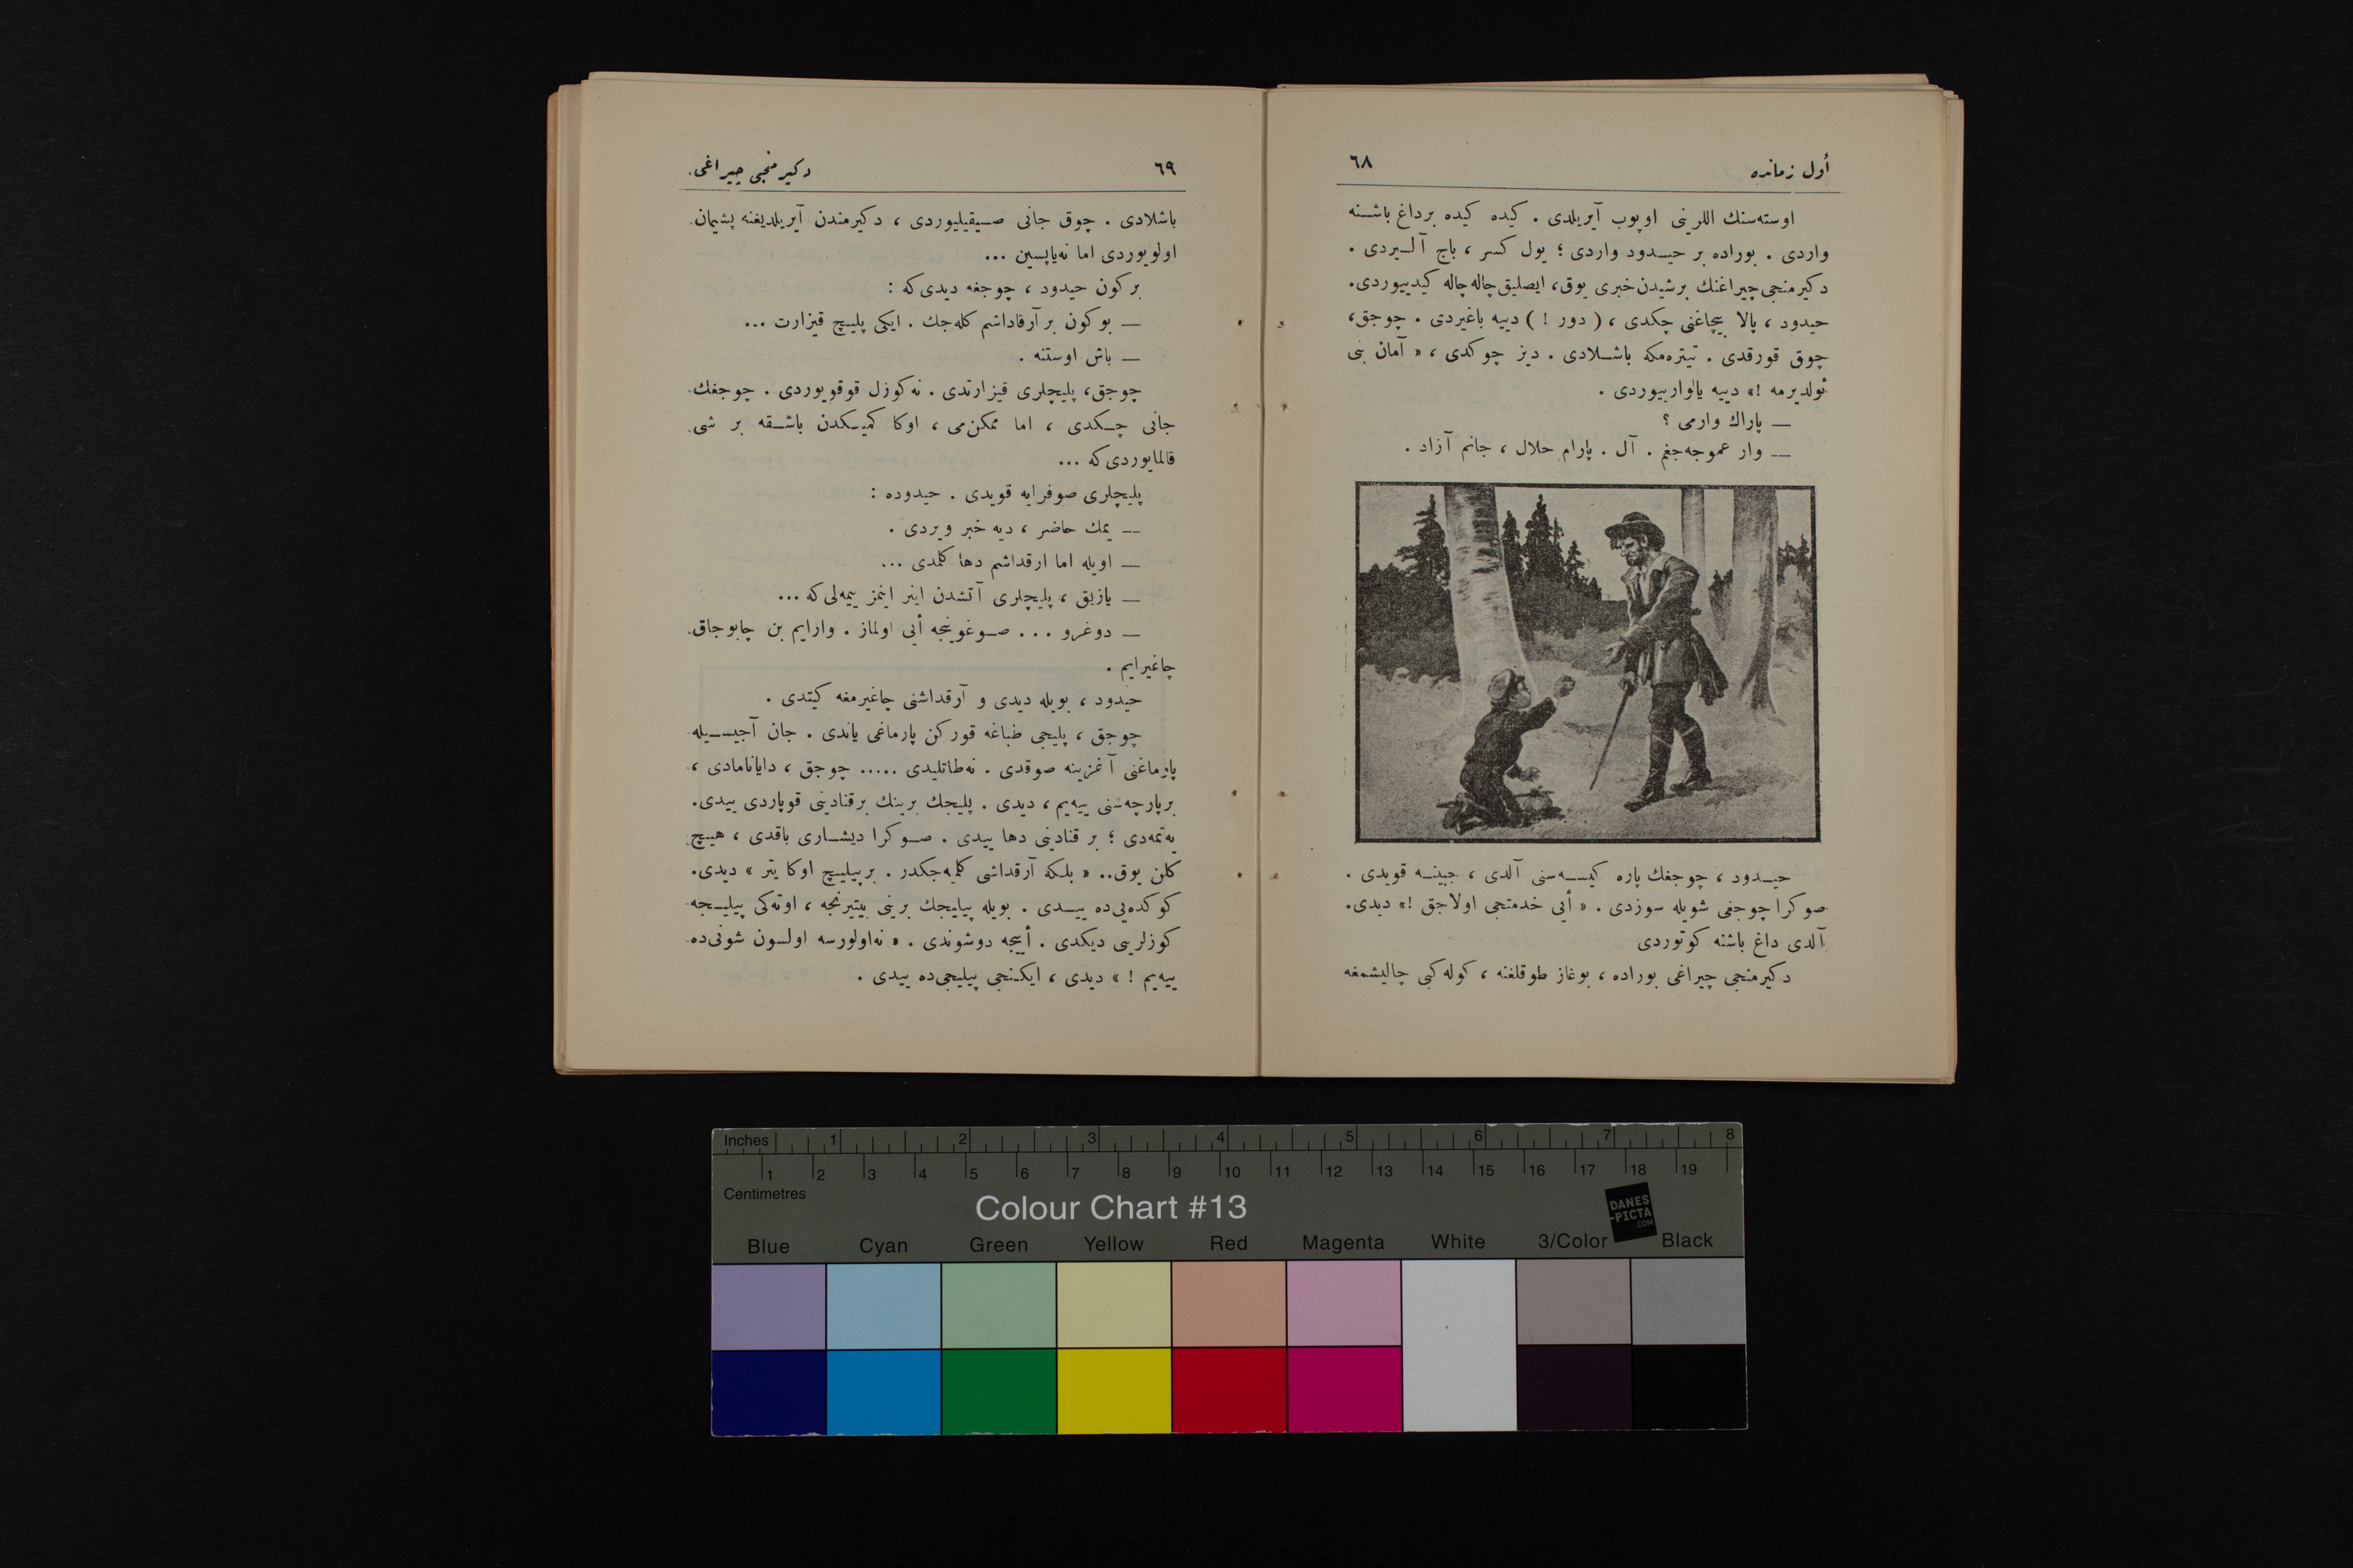 أول زمانده
٦٨
اوسته‌سنك اللرینی اوپوب آیریلدی . كیده كیده برداغ باشـنه
واردی . بوراده بر حیـدود واردی ؛ یول كسر ، باج آلـیردی .
دكیرمنجی چیراغنك برشیدن خبری یوق، ایصلیق چاله چاله كیدییوردی.
حیدود ، پالا بیچاغنی چكدی ، ( دور ! ) دییه باغیردی . چوجق،
چوق قورقدی . تیتره‌مكه باشـلادی . دیز چوكدی ، « آمان بنی
ئولدیرمه !» دییه یالوارییوردی .
— پاراك وارمی ؟
— وار عموجه‌جغم . آل . پارام حلال ، جانم آزاد .
حیـدود ، چوجغك پاره كیسـه‌سنی آلدی ، جیبنـه قویدی .
صوكرا چوجغی شویله سوزدی . « أیی خدمتجی اولاجق !» دیدی.
آلدی داغ باشنه كوتوردی
دكیرمنجی چیراغی بوراده ، بوغاز طوقلغنه ، كوله كبی چالیشمغه
٦٩
دكیرمنجی چیراغی.
باشلادی . چوق جانی صـیقیلیوردی ، دكیرمندن آیریلدیغنه پشیمان
اولویوردی اما نه‌یاپسین ...
بر كون حیدود ، چوجغه دیدی‌كه :
— بو كون بر آرقاداشم كله‌جك . ایكی پلیـچ قیزارت ...
— باش اوستنه .
چوجق، پلیچلری قیزارتدی . نه كوزل قوقویوردی . چوجغك
جانی چـكدی ، اما ممكن‌می ، اوكا كمیـكدن باشـقه بر شی
قالمایوردی كه ...
پلیچلری صوفرایه قویدی . حیدوده :
— یمك حاضر ، دیه خبر ویردی .
— اویله اما ارقداشم دها كلمدی ...
— یازیق ، پلیچلری آتشدن اینر اینمز ییمه‌لی كه ...
— دوغرو ... صـوغوینجه أیی اولماز . وارایم بن چابوجاق
چاغیرایم .
حیدود ، بویله دیدی و آرقداشنی چاغیرمغه كیتدی .
چوجق ، پلیجی طباغه قوركن پارماغی یاندی . جان آجیسـیله
پارماغنی آغزینه صوقدی . نه‌طاتلیدی ..... چوجق ، دایانامادی ،
برپارچه‌سنی ییه‌یم ، دیدی . پلیجك برینك برقنادینی قوپاردی ییدی.
یه‌تمه‌دی ؛ بر قنادینی دها ییدی . صـوكرا دیشـاری باقدی ، هیـچ
كلن یوق.. « بلكه آرقداشی كلمیه‌جكدر . برپیلیـچ اوكا یتر » دیدی.
كوكده‌یی‌ده ییـدی . بویله پیلیجك برینی بیتیرنجه ، اوته‌كی پیلیـجه
كوزلرینی دیكدی . أییجه دوشوندی . « نه‌اولورسه اولسون شونی‌ده
ییه‌یم ! » دیدی ، ایكـنجی پیلیجی‌ده ییدی .
Inches 1 2 3 4 5 6 7 8
1 2 3 4 5 6 7 8 9 10 11 12 13 14 15 16 17 18 19
Centimetres
Colour Chart #13
DANES
-PICTA
.COM
Blue Cyan Green Yellow Red Magenta White 3/Color Black